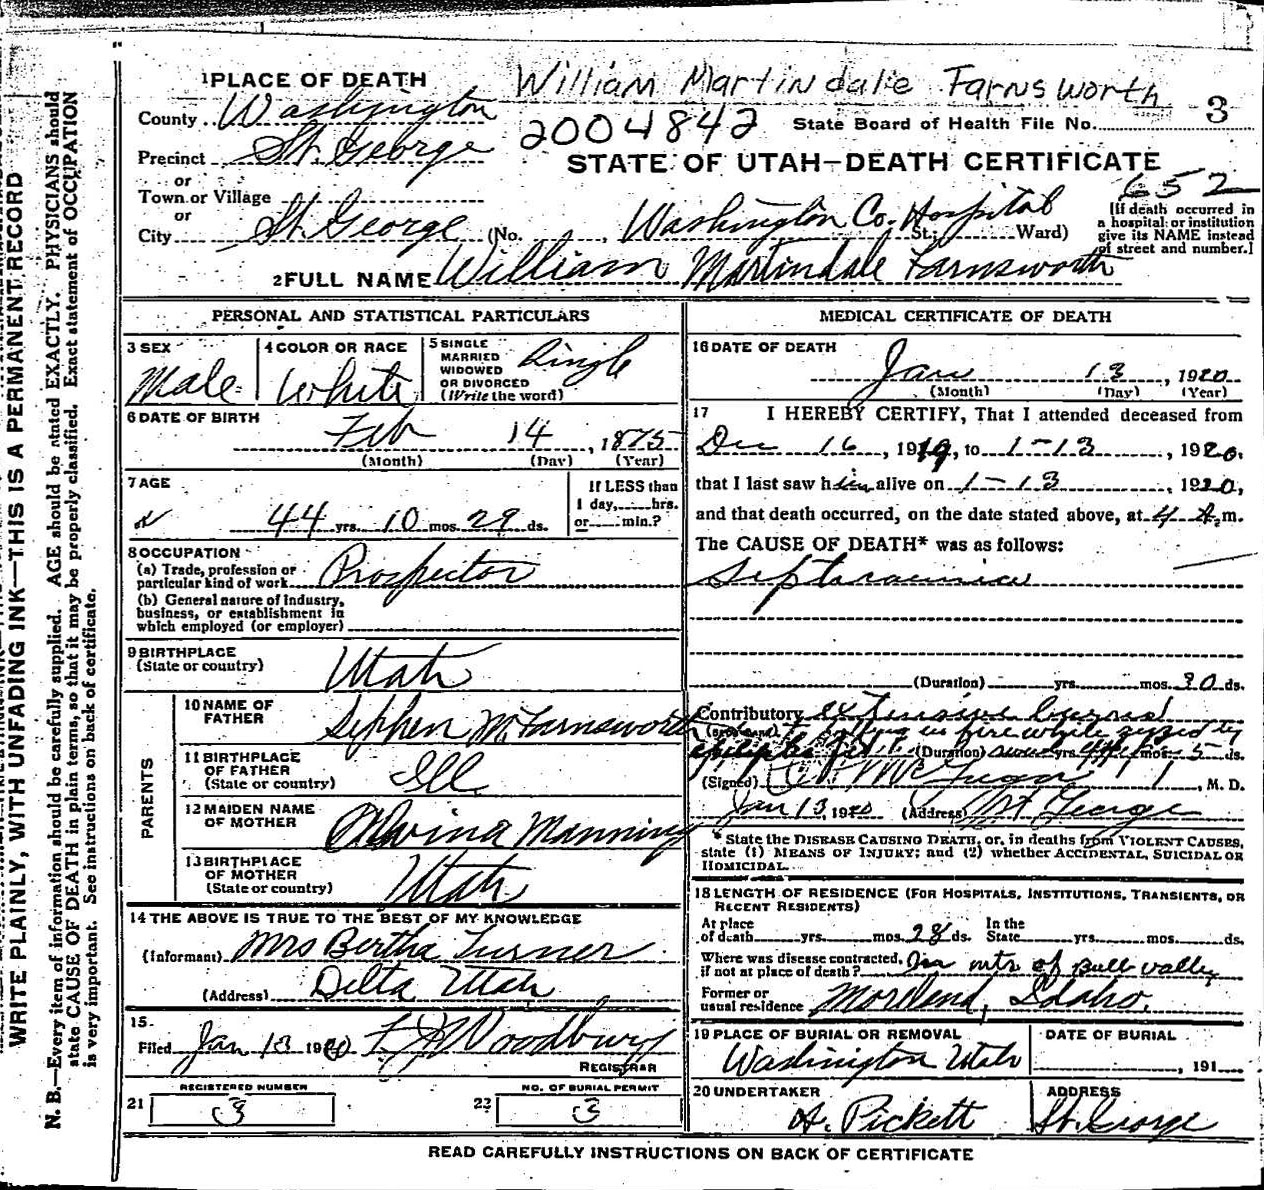 William Martindale Farnsworth
1 PLACE OF DEATH
County Washington
2004842 State Board of Health File No. 3
Precinct St. George
STATE OF UTAH—DEATH CERTIFICATE
or
Town or Village
652
or
City St. George (No. , Washington Co. Hospital St.; Ward)
[If death occurred in
a hospital or institution
give its NAME instead
of street and number.]
2 FULL NAME William Martindale Farnsworth
PERSONAL AND STATISTICAL PARTICULARS
3 SEX
Male
4 COLOR OR RACE
White
5 SINGLE
MARRIED
WIDOWED
OR DIVORCED
(Write the word)
Single
6 DATE OF BIRTH
Feb 14, 1875
(Month) (Day) (Year)
7 AGE
44 yrs. 10 mos. 29 ds.
If LESS than
1 day, hrs.
or min.?
8 OCCUPATION
(a) Trade, profession or
particular kind of work Prospector
(b) General nature of industry,
business, or establishment in
which employed (or employer)
9 BIRTHPLACE
(State or country) Utah
PARENTS
10 NAME OF
FATHER Stephen M. Farnsworth
11 BIRTHPLACE
OF FATHER
(State or country) Ill
12 MAIDEN NAME
OF MOTHER Manning
13 BIRTHPLACE
OF MOTHER
(State or country) Utah
14 THE ABOVE IS TRUE TO THE BEST OF MY KNOWLEDGE
(Informant) Mrs Bertha Turner
(Address) Delta Utah
15.
Filed Jan 13 1920 F J Woodbury
REGISTRAR
REGISTERED NUMBER
21 3
NO. OF BURIAL PERMIT
22 3
MEDICAL CERTIFICATE OF DEATH
16 DATE OF DEATH
Jan 13, 1920
(Month) (Day) (Year)
17 I HEREBY CERTIFY, That I attended deceased from
Dec 16, 1919, to 1-13, 1920,
that I last saw him alive on 1-13, 1920,
and that death occurred, on the date stated above, at 4 A.m.
The CAUSE OF DEATH* was as follows:
Septicaemia
(Duration) yrs. mos. 30 ds.
Contributory extensive burns
fire while seized by
(Duration) yrs. mos. 5 ds.
(Signed) , M. D.
Jan 13, 1920 (Address) St. George
* State the DISEASE CAUSING DEATH, or, in deaths from VIOLENT CAUSES,
state (1) MEANS OF INJURY; and (2) whether ACCIDENTAL, SUICIDAL OR
HOMICIDAL.
18 LENGTH OF RESIDENCE (FOR HOSPITALS, INSTITUTIONS, TRANSIENTS, OR
RECENT RESIDENTS)
At place
of death yrs. mos. 28 ds.
In the
State yrs. mos. ds.
Where was disease contracted,
if not at place of death? In mts of Bull valley
Former or
usual residence Moreland, Idaho.
19 PLACE OF BURIAL OR REMOVAL
Washington Utah
DATE OF BURIAL
, 191
20 UNDERTAKER
A. Pickett
ADDRESS
St. George
READ CAREFULLY INSTRUCTIONS ON BACK OF CERTIFICATE
WRITE PLAINLY, WITH UNFADING INK—THIS IS A PERMANENT RECORD
N. B.—Every item of information should be carefully supplied. AGE should be stated EXACTLY. PHYSICIANS should
state CAUSE OF DEATH in plain terms, so that it may be properly classified. Exact statement of OCCUPATION
is very important. See instructions on back of certificate.